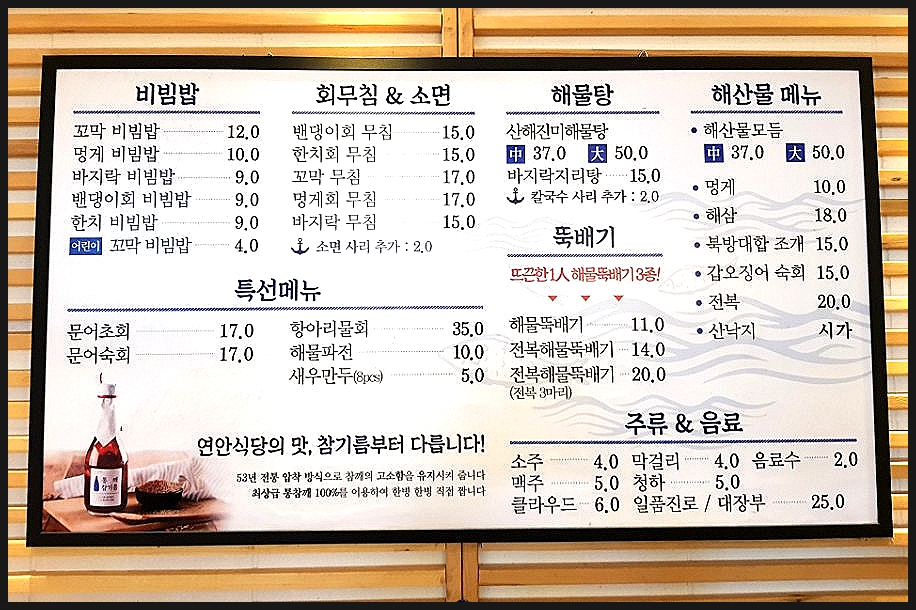 비빔밥
꼬막 비빔밥 12.0
멍게 비빔밥 10.0
바지락 비빔밥 9.0
밴댕이회 비빔밥 9.0
한치 비빔밥 9.0
어린이 꼬막 비빔밥 4.0
회무침 & 소면
밴댕이회 무침 15.0
한치회 무침 15.0
꼬막 무침 17.0
멍게회 무침 17.0
바지락 무침 15.0
소면 사리 추가 : 2.0
특선메뉴
문어초회 17.0
문어숙회 17.0
항아리물회 35.0
해물파전 10.0
새우만두(8pcs) 5.0
해물탕
산해진미해물탕
中 37.0 大 50.0
바지락지리탕 15.0
칼국수 사리 추가 : 2.0
뚝배기
뜨끈한 1人 해물뚝배기 3종!
해물뚝배기 11.0
전복해물뚝배기 14.0
전복해물뚝배기 20.0
(전복 3마리)
해산물 메뉴
• 해산물모듬
中 37.0 大 50.0
• 멍게 10.0
• 해삼 18.0
• 북방대합 조개 15.0
• 갑오징어 숙회 15.0
• 전복 20.0
• 산낙지 시가
주류 & 음료
소주 4.0 막걸리 4.0 음료수 2.0
맥주 5.0 청하 5.0
클라우드 6.0 일품진로 / 대장부 25.0
연안식당의 맛, 참기름부터 다릅니다!
53년 전통 압착 방식으로 참깨의 고소함을 유지시켜 줍니다
최상급 통참깨 100%를 이용하여 한병 한병 직접 짭니다
통깨
참기름